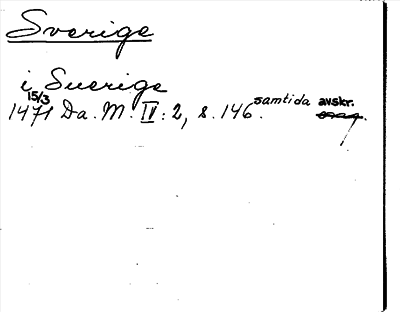 Sverige
i Suerige
15/3
1471 Da. M. IV: 2, s. 146. samtida avskr.